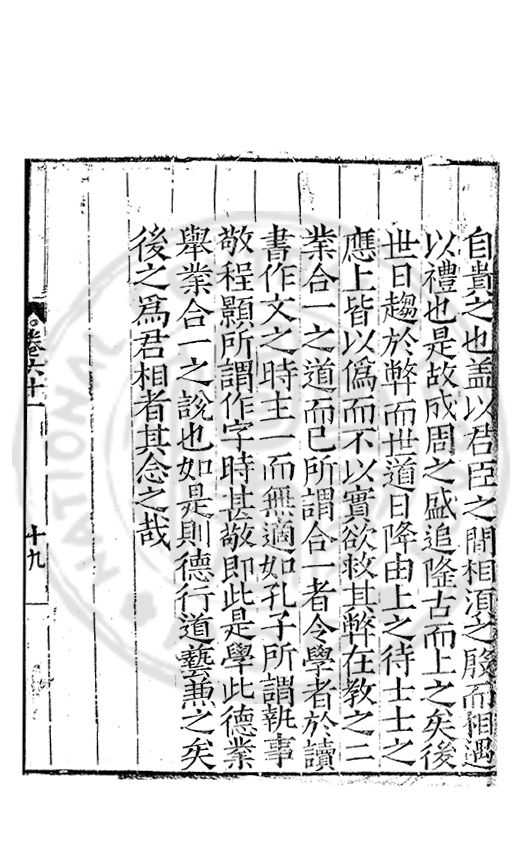 自貴之也盖以君臣之間相湏之殷而相遇
以禮也是故成周之盛追隆古而上之矣後
世日趨於弊而世道日降由上之待士士之
應上皆以偽而不以實欲救其弊在教之二
業合一之道而已所謂合一者令學者於讀
書作文之時主一而無適如孔子所謂執事
敬程顥所謂作字時甚敬即此是學此德業
舉業合一之說也如是則德行道藝兼之矣
後之為君相者其念之哉
卷六十一
十九
NATIONAL